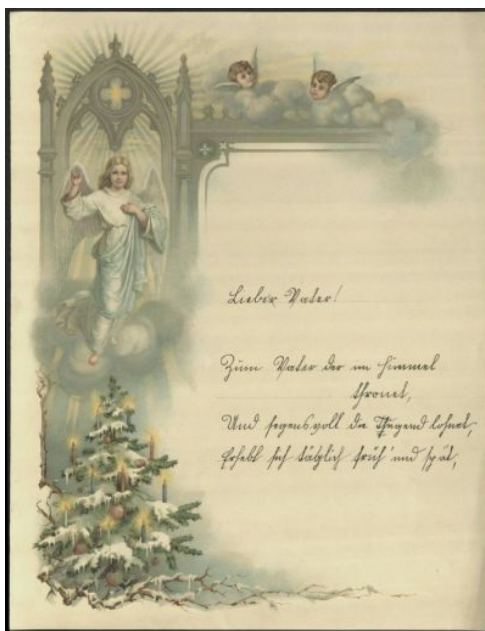 Lieber Vater!
Zum Vater der im Himmel
thronet,
Und segensvoll die Thugend lohnet,
Erhebt sich täglich früh und spät,